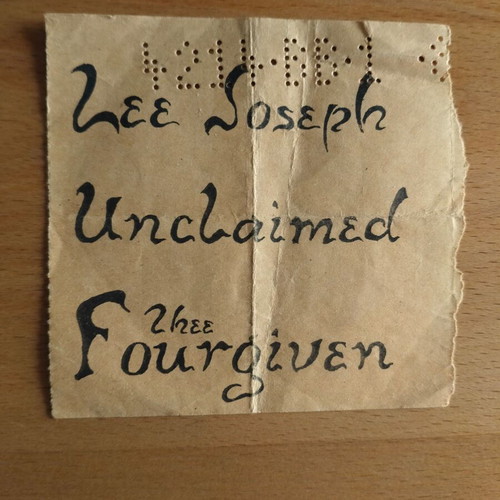 Lee Joseph
Unclaimed
Thee
Fourgiven